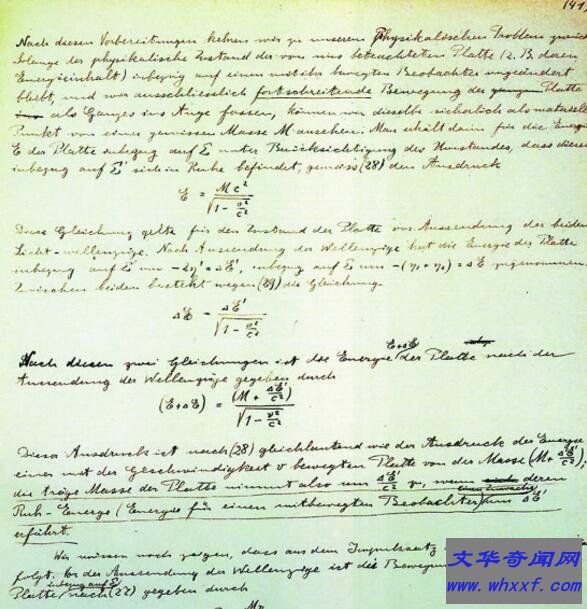 (41)
Nach diesen Vorbereitungen kehren wir zu unserem physikalischen Problem zurück
Solange der physikalische Zustand der von uns betrachteten Platte (z. B. deren
Energieinhalt) inbezug auf einen mit ihr bewegten Beobachter ungeändert
bleibt, und wir ausschliesslich fortschreitende Bewegung der Platte
als Ganzes ins Auge fassen, können wir dieselbe sicherlich als materiellen
Punkt von einer gewissen Masse M ansehen. Man erhält dann für die Energie
E der Platte inbezug auf Σ unter Berücksichtigung des Umstandes, dass dieselbe
inbezug auf Σ' sich in Ruhe befindet, gemäss (28) den Ausdruck
E = Mc² / √(1 - v²/c²)
Diese Gleichung gelte für den Zustand der Platte vor Aussendung der beiden
Licht-wellenzüge. Nach Aussendung der Wellenzüge hat die Energie der Platte
inbezug auf Σ' um -2η' = ΔE', inbezug auf Σ um -(η₁ + η₂) = ΔE zugenommen.
Zwischen beiden besteht wegen (29) die Gleichung
ΔE = ΔE' / √(1 - v²/c²)
Nach diesen zwei Gleichungen ist die Energie E+ΔE der Platte nach der
Aussendung der Wellenzüge gegeben durch
(E+ΔE) = (M + ΔE'/c²) / √(1 - v²/c²)
Dieser Ausdruck ist nach (28) gleichlautend wie der Ausdruck der Energie
einer mit der Geschwindigkeit v bewegten Platte von der Masse (M + ΔE'/c²);
die träge Masse der Platte nimmt also um ΔE'/c² zu, wenn deren
Ruh-Energie (Energie für einen mitbewegten Beobachter) um ΔE'
erfährt.
Wir müssen noch zeigen, dass aus dem Impulssatz
folgt. Vor der Aussendung der Wellenzüge ist die
Platte inbezug auf Σ nach (27) gegeben durch
Mv
文华奇闻网
www.whxxf.com